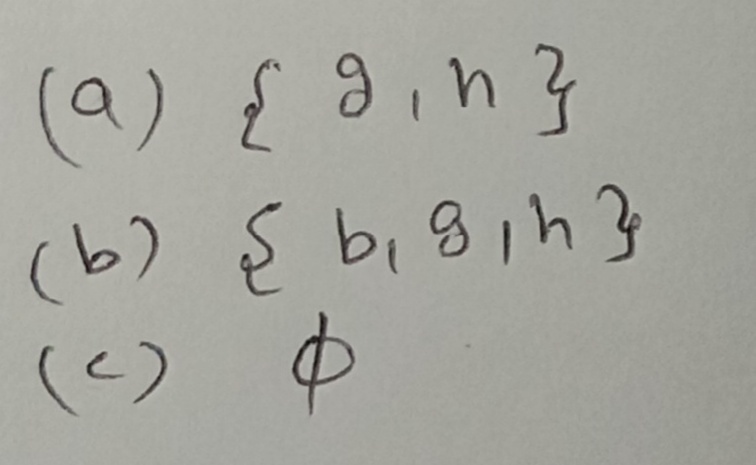 (a) { g, n }
(b) { b, g, h }
(c) ϕ